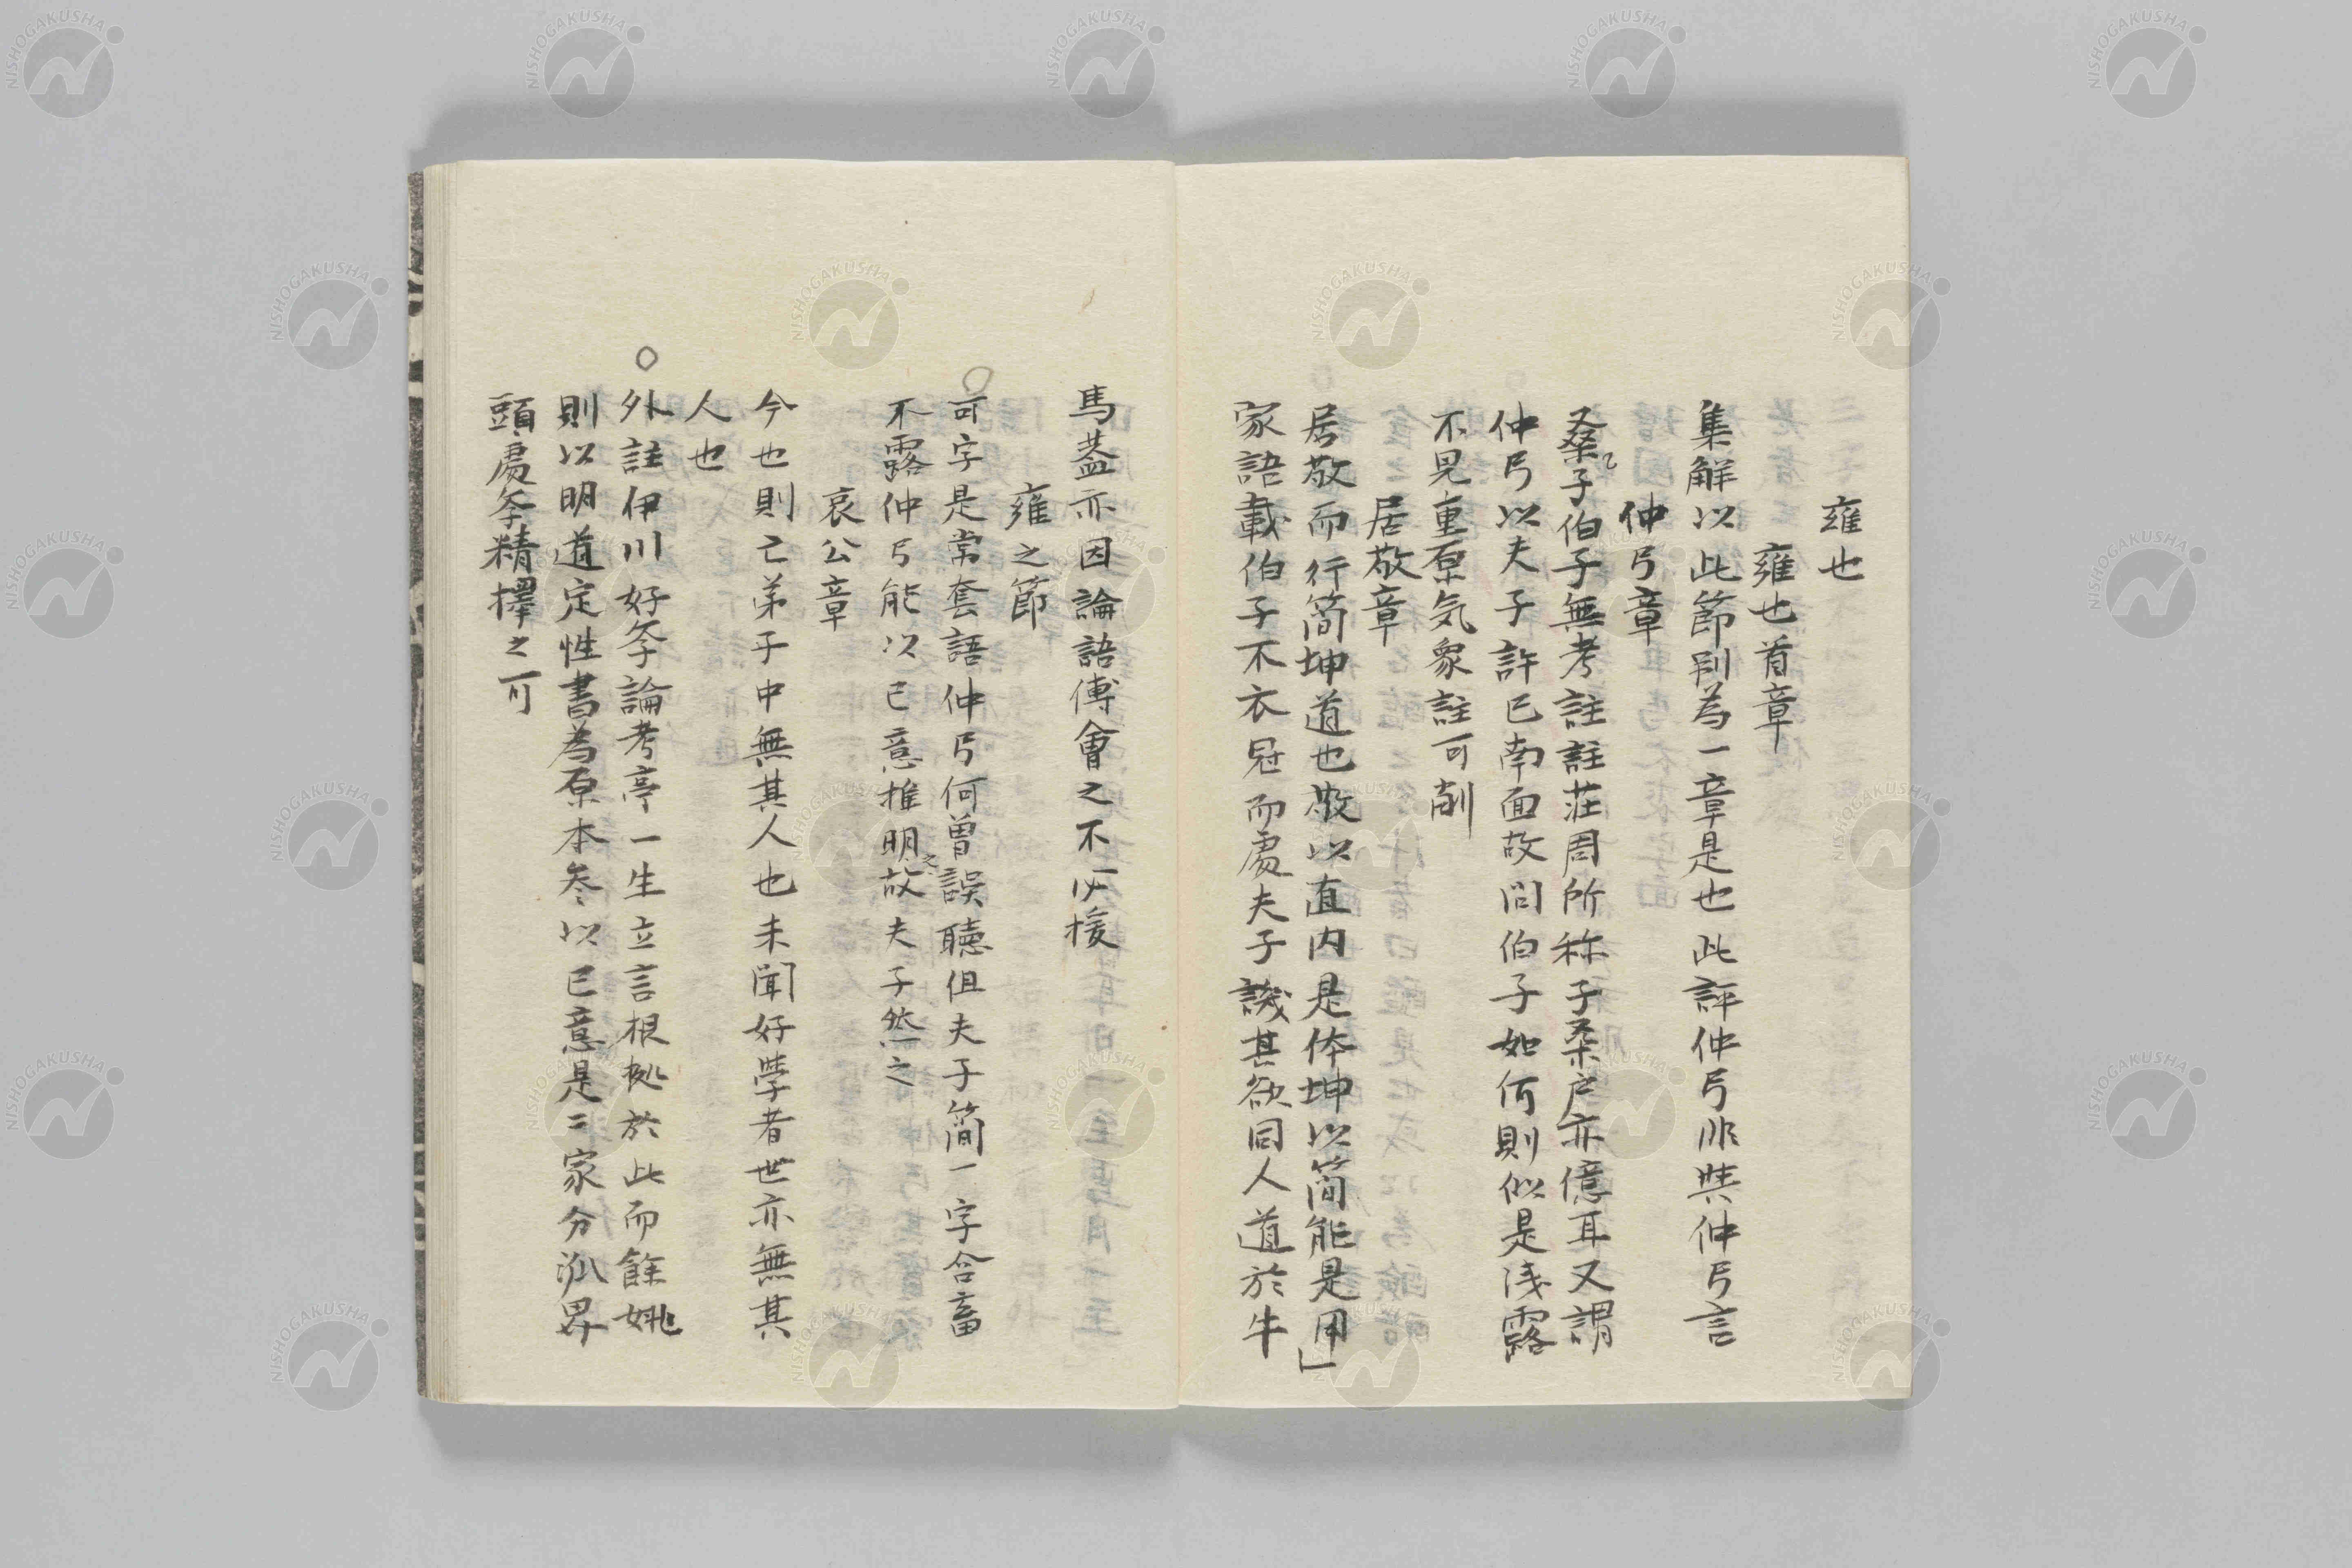 雍也
雍也首章
集解以此節別為一章是也此評仲弓非與仲弓言
仲弓章
桑子伯子無考註註荘周所称子桑戸亦億耳又謂
仲弓以夫子許已南面故问伯子如何則似是浅露
不見重厚気象註可削
居敬章
居敬而行简坤道也敬以直内是体坤以简能是用」
家語載伯子不衣冠而處夫子譏其欲同人道於牛
馬蓋亦因論語傅會之不必援
雍之節
可字是常套語仲弓何曽誤聴但夫子简一字含畜
不露仲弓能以已意推明之故夫子然之
哀公章
今也則亡弟子中無其人也未聞好学者世亦無其
人也
外註伊川好学論考亭一生立言根拠於此而餘姚
則以明道定性書為原本参以已意是二家分派界
頭處学精擇之可
NISHOGAKUSHA